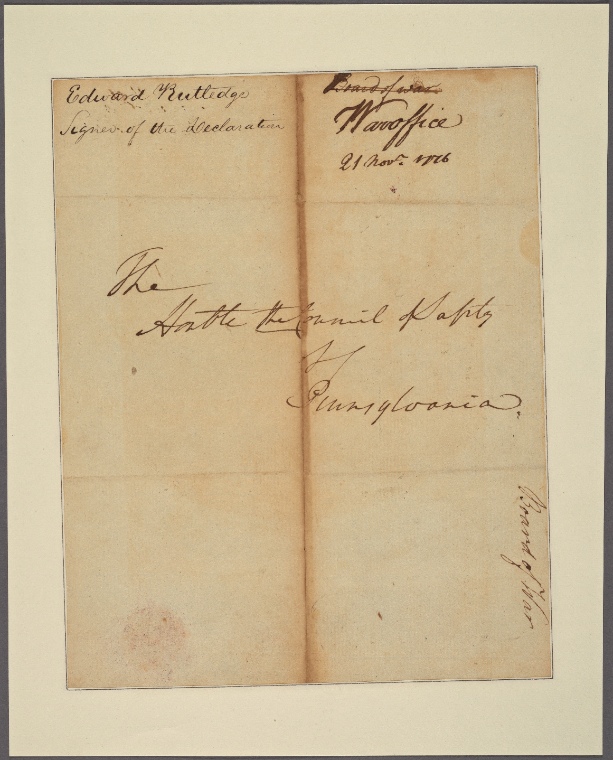 Edward Rutledge
Signer of the Declaration
Board of war
War office
21 Novr. 1776
The
Honble the Council of Safety
of
Pennsylvania.
Board of War